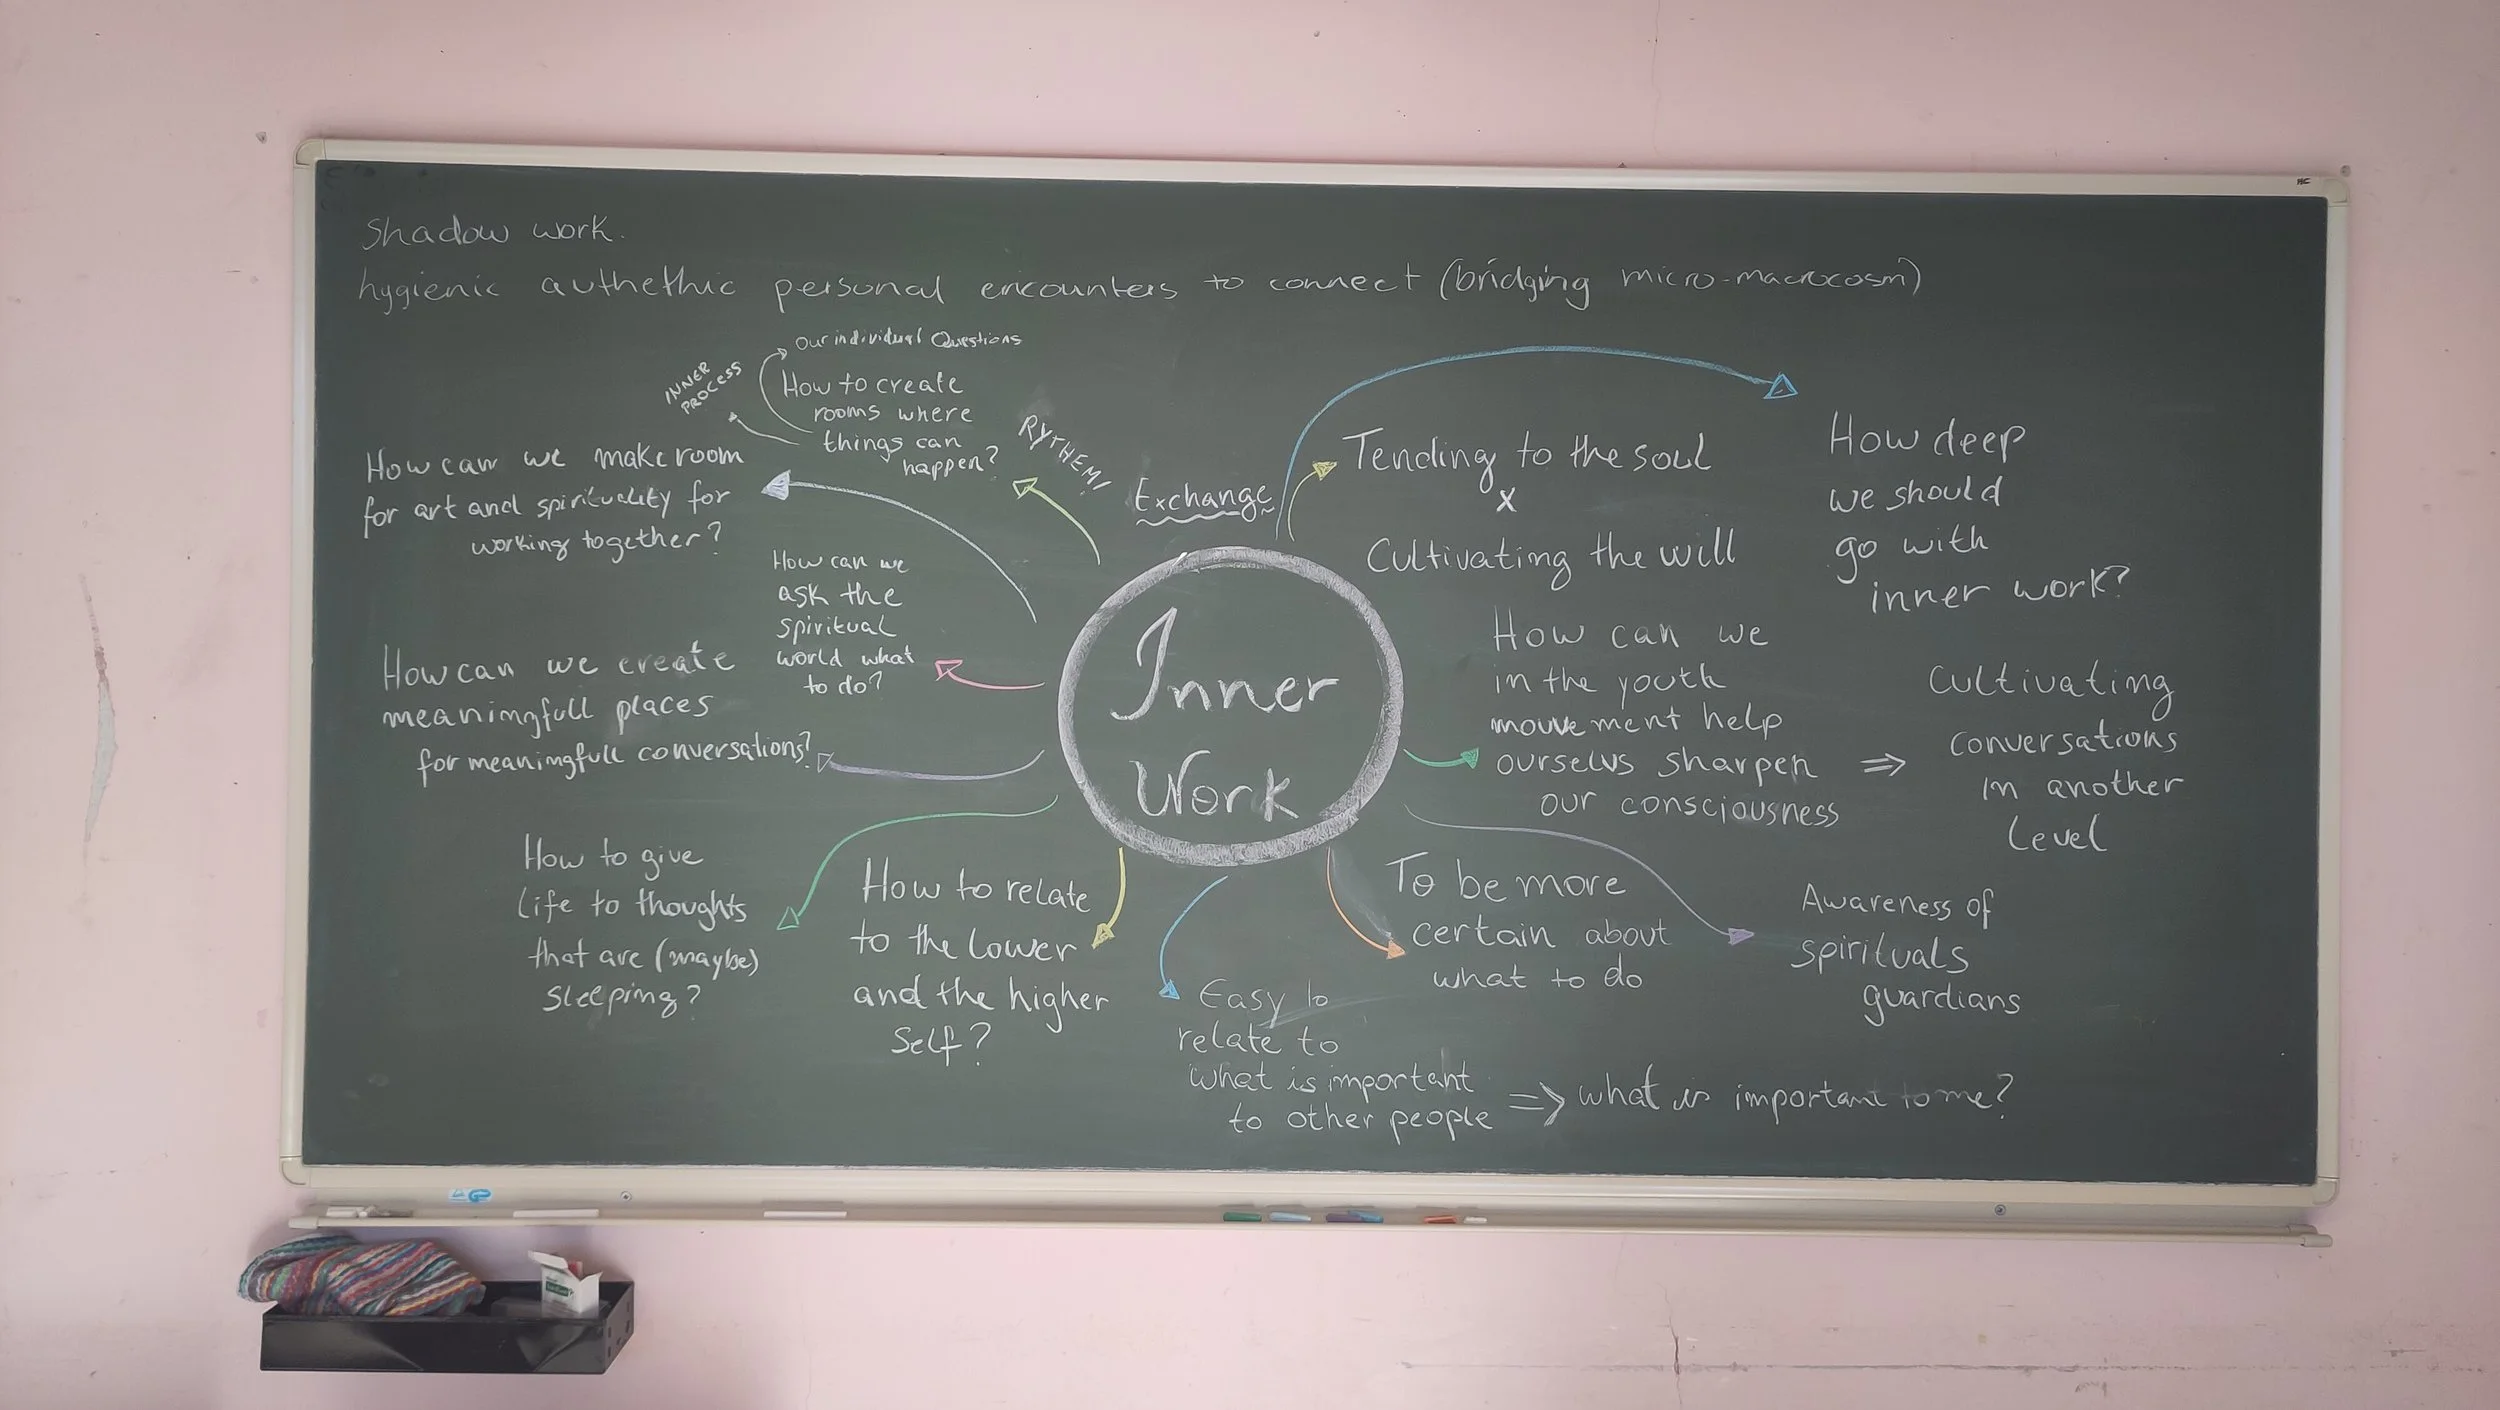 Shadow work.
hygienic authethic personal encounters to connect (bridging micro-macrocosm)
Our individual Questions
INNER
PROCESS
How to create
rooms where
things can
happen?
RYTHEM!
Exchange
How can we make room
for art and spirituality for
working together?
How can we
ask the
spiritual
world what
to do?
How can we create
meaningfull places
for meaningfull conversations?
How to give
life to thoughts
that are (maybe)
sleeping?
How to relate
to the lower
and the higher
Self?
Inner
Work
Tending to the soul
x
Cultivating the will
How deep
we should
go with
inner work?
How can we
in the youth
mouvement help
ourselvs sharpen
our consciousness
⇒
Cultivating
conversations
in another
level
To be more
certain about
what to do
Awareness of
spirituals
guardians
Easy to
relate to
what is important
to other people
⇒ what is important to me?